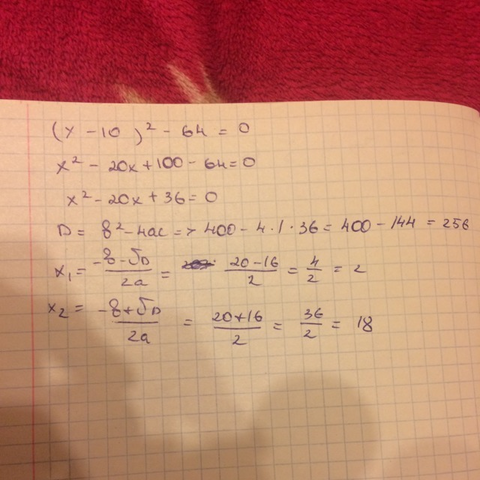 (x - 10)² - 64 = 0
x² - 20x + 100 - 64 = 0
x² - 20x + 36 = 0
D = b² - 4ac => 400 - 4 · 1 · 36 = 400 - 144 = 256
x₁ = (-b - √D)/2a = (20 - 16)/2 = 4/2 = 2
x₂ = (-b + √D)/2a = (20 + 16)/2 = 36/2 = 18